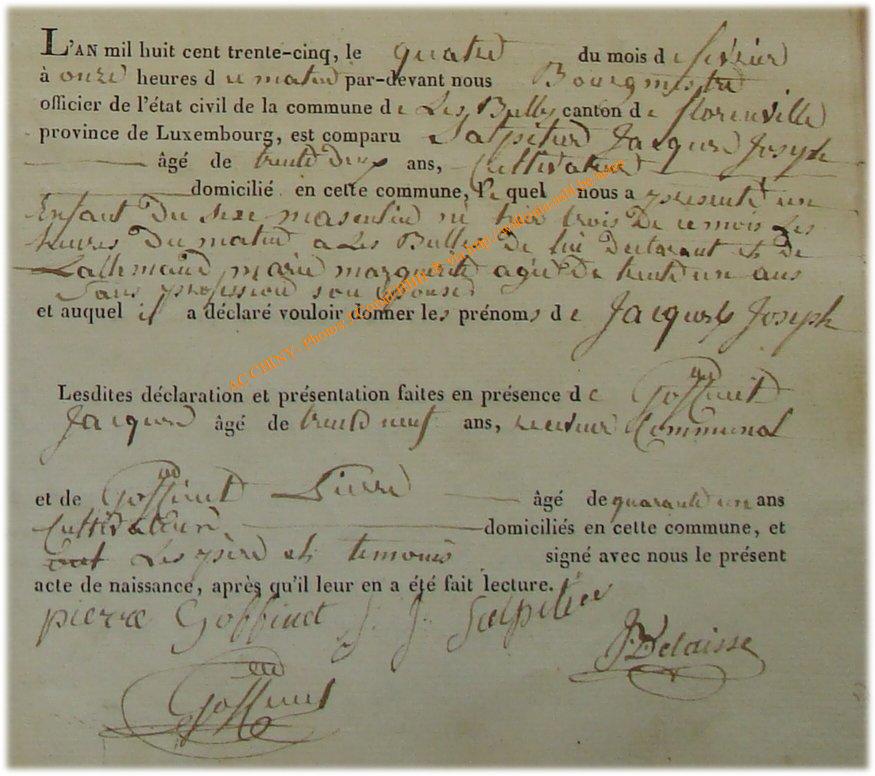 L'AN mil huit cent trente-cinq, le quatre du mois de fevrier
à onze heures d u matin par-devant nous Bourgmestre
officier de l'état civil de la commune de Les Bulles canton de florenville
province de Luxembourg, est comparu Salpitier Jacques Joseph
âgé de trente deux ans, Cultivateur
domicilié en cette commune, lequel nous a presenté un
Enfant du sexe masculin né hier trois de ce mois les
heures du matin a Les Bulles de lui declarant et de
Lallemand marie marguerite agée de trente un ans
Sans profession son epouse
et auquel il a déclaré vouloir donner les prénoms de Jacques Joseph
Lesdites déclaration et présentation faites en présence de Goffinet
Jacques âgé de trente neuf ans, receveur Communal
et de Goffinet Pierre âgé de quarante un ans
Cultivateur domiciliés en cette commune, et
ont Les père et temoins signé avec nous le présent
acte de naissance, après qu'il leur en a été fait lecture.
pierre Goffinet J. J. Salpetier
JB Delaisse
Goffinet